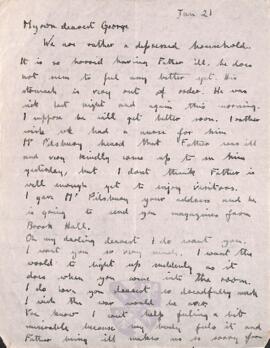 Jan 21
My own dearest George
We are rather a depressed household.
It is so horrid having Father ill. he does
not seem to feel any better yet. His
stomach is very out of order. He was
sick last night and again this morning.
I suppose he will get better soon. I rather
wish we had a nurse for him
Mr Pilsbury heard that Father was ill
and very kindly came up to see him
yesterday, but I don't think Father is
well enough yet to enjoy visitors.
I gave Mr Pilsbury your address and he
is going to send you magazines from
Brook Hall.
Oh my darling dearest I do want you.
I want you so very much. I want the
world to light up suddenly as it
does when you come into the room.
I do love you dearest so dreadfully much
I wish the war would be over.
You know I can't help feeling a bit
miserable because my body feels it and
Father being ill makes me so sorry for